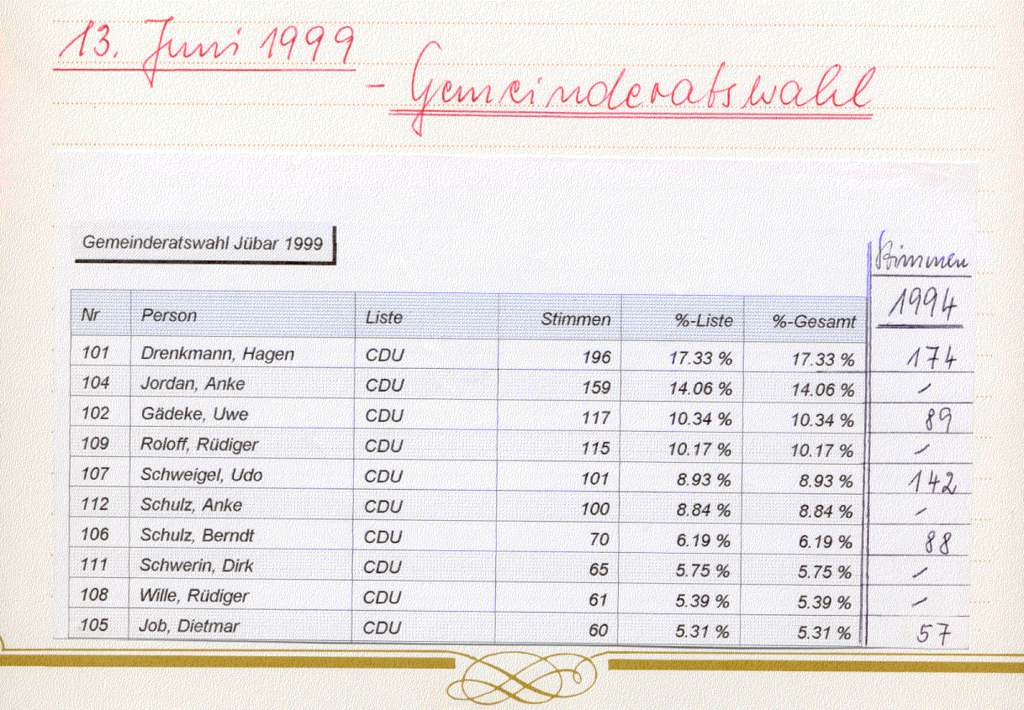 13. Juni 1999
- Gemeinderatswahl
Gemeinderatswahl Jübar 1999
Stimmen
1994
Nr Person Liste Stimmen %-Liste %-Gesamt
101 Drenkmann, Hagen CDU 196 17.33 % 17.33 % 174
104 Jordan, Anke CDU 159 14.06 % 14.06 % /
102 Gädeke, Uwe CDU 117 10.34 % 10.34 % 89
109 Roloff, Rüdiger CDU 115 10.17 % 10.17 % /
107 Schweigel, Udo CDU 101 8.93 % 8.93 % 142
112 Schulz, Anke CDU 100 8.84 % 8.84 % /
106 Schulz, Berndt CDU 70 6.19 % 6.19 % 88
111 Schwerin, Dirk CDU 65 5.75 % 5.75 % /
108 Wille, Rüdiger CDU 61 5.39 % 5.39 % /
105 Job, Dietmar CDU 60 5.31 % 5.31 % 57